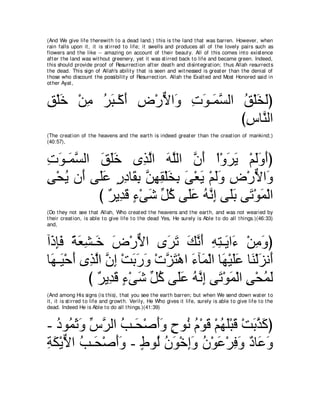 (And We give life therewith to a dead land.) this is the land that was barren. However, when
rain falls upon it, it is stirred to life; it swells and produces all of the lovely pairs such as
flowers and the like -- amazing on account of their beauty. All of this comes into existence
after the land was without greenery, yet it was stirred back to life and became green. Indeed,
this should provide proof of Resurrection after death and disintegration; thus Allah resurrects
the dead. This sign of Allah's ability that is seen and witnessed is greater than the denial of
those who discount the possibility of Resurrection. Allah the Exalted and Most Honored said in
other Ayat,
لَخَلْقُ السَّمَـوَتِ وَالاٌّرْضِ أَكْـبَرُ مِنْ خَلْقِ)
(النَّاسِ
(The creation of the heavens and the earth is indeed greater than the creation of mankind.)
(40:57),
أَوَلَمْ يَرَوْاْ أَنَّ اللَّهَ الَّذِى خَلَقَ السَّمَـوَتِ)
وَالاٌّرْضِ وَلَمْ يَعْىَ بِخَلْقِهِنَّ بِقَادِرٍ عَلَى أَن يُحْىِ
(الْمَوْتَى بَلَى إِنَّهُ عَلَى كُلِّ شَىْءٍ قَدِيرٌ
(Do they not see that Allah, Who created the heavens and the earth, and was not wearied by
their creation, is able to give life to the dead Yes, He surely is Able to do all things.)(46:33)
and,
وَمِنْ ءَايَـتِهِ أَنَّكَ تَرَى الاٌّرْضَ خَـشِعَةً فَإِذَآ)
أَنزَلْنَا عَلَيْهَا الْمَآءَ اهْتَزَّتْ وَرَبَتْ إِنَّ الَّذِى أَحْيَـهَا
(لَمُحْىِ الْمَوْتَى إِنَّهُ عَلَى كُلِّ شَىْءٍ قَدِيرٌ
(And among His signs (is this), that you see the earth barren; but when We send down water to
it, it is stirred to life and growth. Verily, He Who gives it life, surely is able to give life to the
dead. Indeed He is Able to do all things.)(41:39)
كَذَّبَتْ قَبْلَهُمْ قَوْمُ نُوحٍ وَأَصْحَـبُ الرَّسِّ وَثَمُودُ -)
وَعَادٌ وَفِرْعَوْنُ وَإِخْوَنُ لُوطٍ - وَأَصْحَـبُ الاٌّيْكَةِ